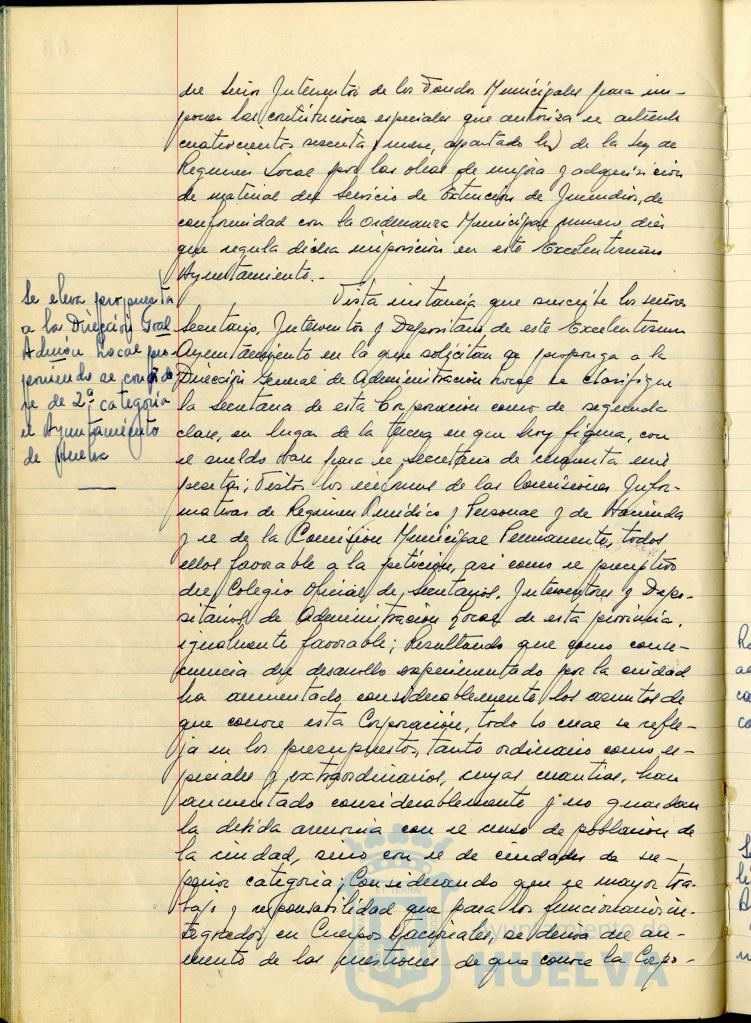 del Señor Interventor de los Fondos Municipales para im-
poner las contribuciones especiales que autoriza el artículo
cuatrocientos sesenta y nueve, apartado b) de la Ley de
Regimen Local por las obras de mejora y adquisicion
de material del Servicio de Extincion de Incendios, de
conformidad con la Ordenanza Municipal numero diez
que regula dicha imposicion en este Excelentisimo
Ayuntamiento.-
Se eleva propuesta
a la Dirección Gral
Admón Local pro-
poniendo se considere
de 2ª categoría
el Ayuntamiento
de Huelva
Vista instancia que suscribe los señores
Secretario, Interventor y Depositario de este Excelentisimo
Ayuntamiento en la que solicitan se proponga a la
Dirección General de Administración Local se clasifique
la Secretaria de esta Corporacion como de segunda
clase, en lugar de la tercera en que hoy figura, con
el sueldo para el Secretario de cincuenta mil
pesetas; Vistos los informes de las Comisiones Infor-
mativas de Regimen Juridico y Personal y de Hacienda
y el de la Comision Municipal Permanente, todos
ellos favorable a la petición, asi como el preceptivo
del Colegio Oficial de Secretarios, Interventores y Depo-
sitarios de Administracion Local de esta provincia,
igualmente favorable; Resultando que como conse-
cuencia del desarrollo experimentado por la ciudad
ha aumentado considerablemente los asuntos de
que conoce esta Corporación, todo lo cual se refle-
ja en los presupuestos, tanto ordinario como es-
peciales y extraordinarios, cuyas cuantias, han
aumentado considerablemente y no guardan
la debida armonia con el censo de poblacion de
la ciudad, sino con el de ciudades de su-
perior categoria; Considerando que el mayor tra-
bajo y responsabilidad que para los funcionarios in-
tegrados en Cuerpos Nacionales, se deriva del au-
mento de las cuestiones de que conoce la Corpo-
Ayuntamiento de
HUELVA